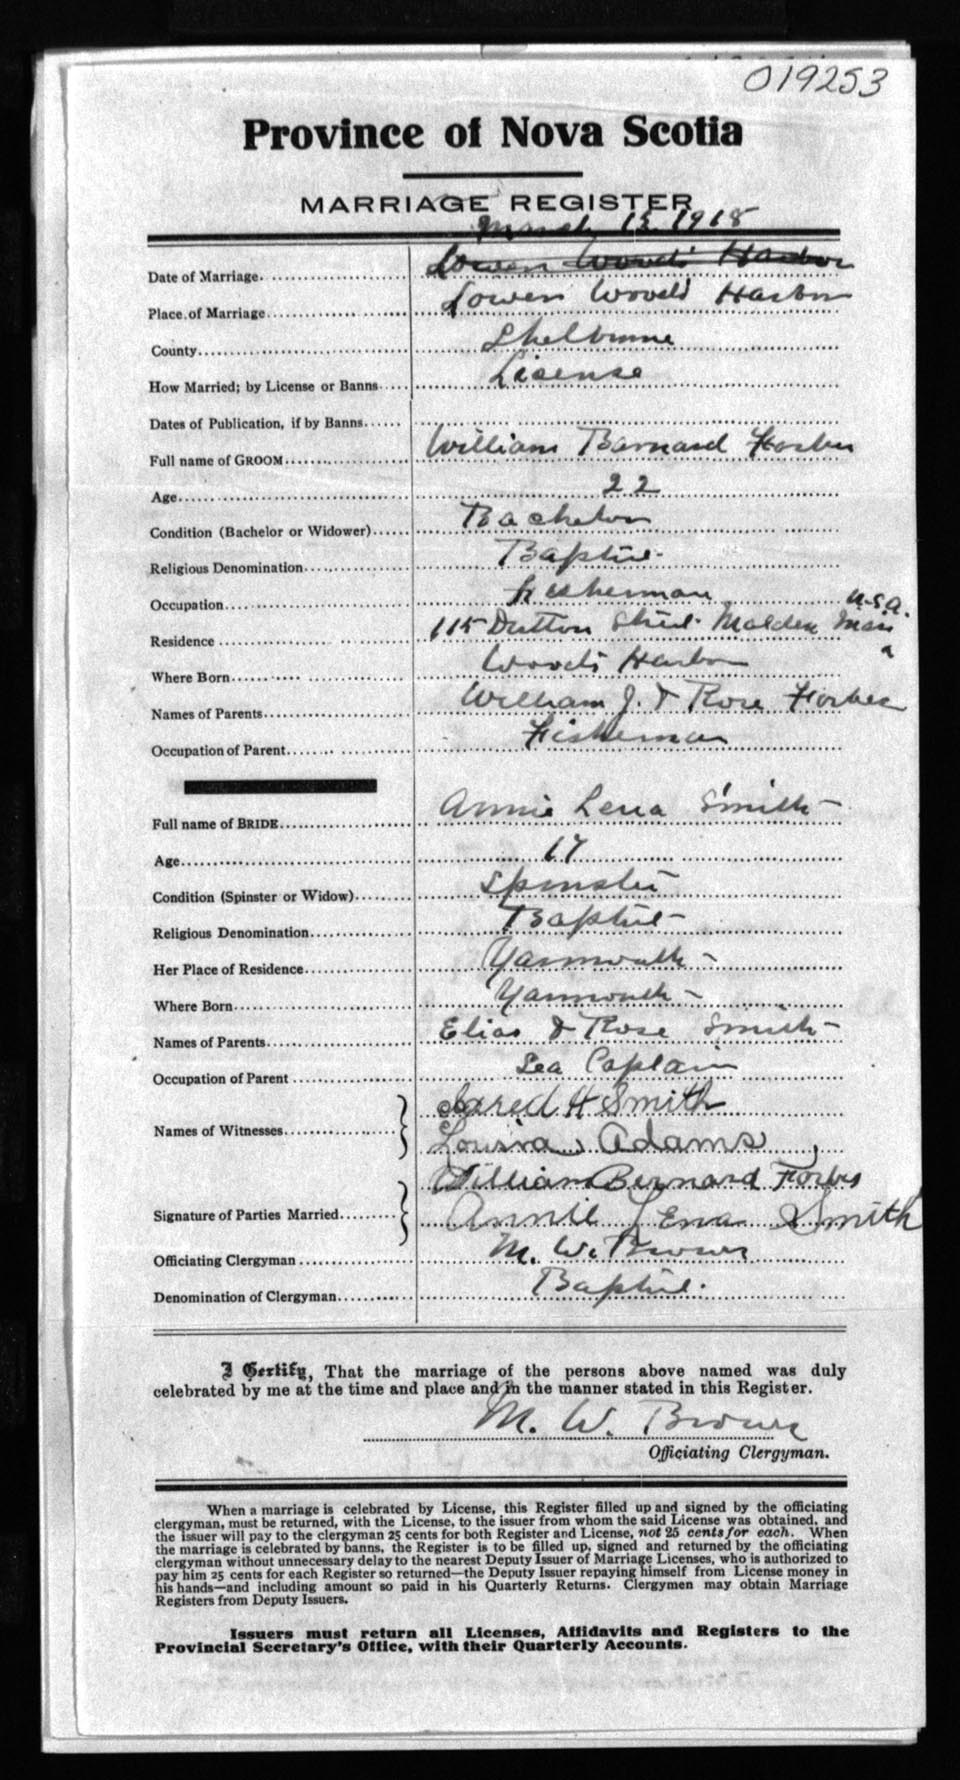 019253
Province of Nova Scotia
MARRIAGE REGISTER
March 13 1918
Date of Marriage Lower Woods Harbor
Place of Marriage Lower Woods Harbor
County Shelburne
How Married; by License or Banns License
Dates of Publication, if by Banns
Full name of GROOM William Barnard Forbes
Age 22
Condition (Bachelor or Widower) Bachelor
Religious Denomination Baptist
Occupation Fisherman
Residence 115 Dutton Street Malden Mass U.S.A.
Where Born Woods Harbor
Names of Parents William J. & Rose Forbes
Occupation of Parent Fisherman
Full name of BRIDE Annie Lena Smith
Age 17
Condition (Spinster or Widow) Spinster
Religious Denomination Baptist
Her Place of Residence Yarmouth
Where Born Yarmouth
Names of Parents Elias & Rose Smith
Occupation of Parent Sea Captain
Names of Witnesses Jared H Smith
Lousia Adams
Signature of Parties Married William Bernard Forbes
Annie Lena Smith
Officiating Clergyman M. W. Brown
Denomination of Clergyman Baptist
I Certify, That the marriage of the persons above named was duly
celebrated by me at the time and place and in the manner stated in this Register.
M. W. Brown
Officiating Clergyman.
When a marriage is celebrated by License, this Register filled up and signed by the officiating
clergyman, must be returned, with the License, to the issuer from whom the said License was obtained, and
the issuer will pay to the clergyman 25 cents for both Register and License, not 25 cents for each. When
the marriage is celebrated by banns, the Register is to be filled up, signed and returned by the officiating
clergyman without unnecessary delay to the nearest Deputy Issuer of Marriage Licenses, who is authorized to
pay him 25 cents for each Register so returned—the Deputy Issuer repaying himself from License money in
his hands—and including amount so paid in his Quarterly Returns. Clergymen may obtain Marriage
Registers from Deputy Issuers.
Issuers must return all Licenses, Affidavits and Registers to the
Provincial Secretary's Office, with their Quarterly Accounts.